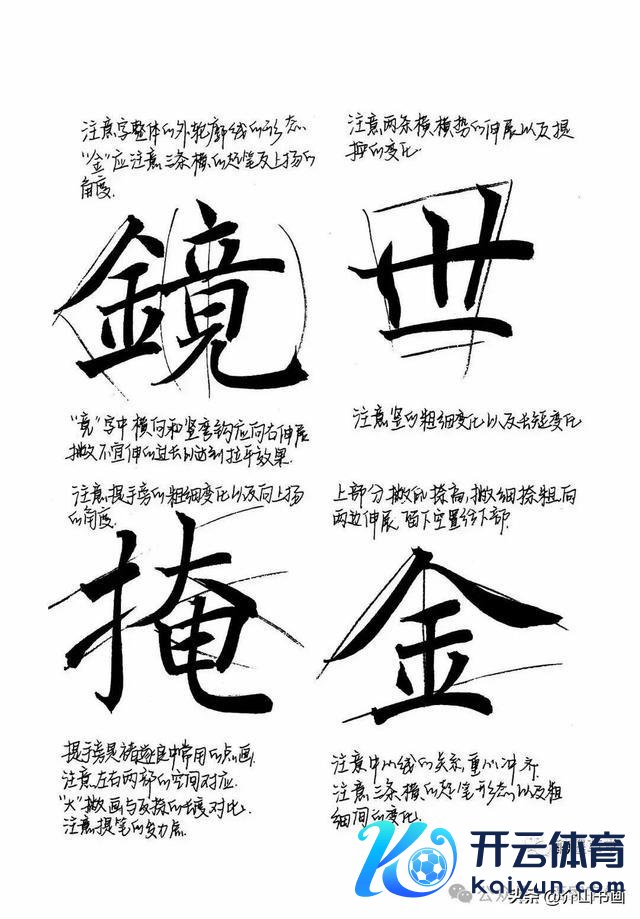 注意字整体的外轮廓线的形态.
"金"应注意三条横的起笔及上扬的
角度.
鏡
"竟"字中横向和竖弯钩应向右伸展
撇不宜伸的过长以达到拉平效果.
注意两条横横势的伸展以及提
按的变化
世
注意竖的粗细变化以及长短变化
注意提手旁的粗细变化以及向上扬
的角度.
掩
提手旁是褚遂良中常用的点画.
注意左右两部的空间对应
"大"撇画与反捺的长度对比.
注意提笔的发力点.
上部分撇低捺高,撇细捺粗向
两边伸展 留下空置给下部.
金
注意中心线的关系,重心冲齐
注意三条横的起笔形态以及粗
细间的变化.
开云体育
kaiyun.com
头条@介山书画